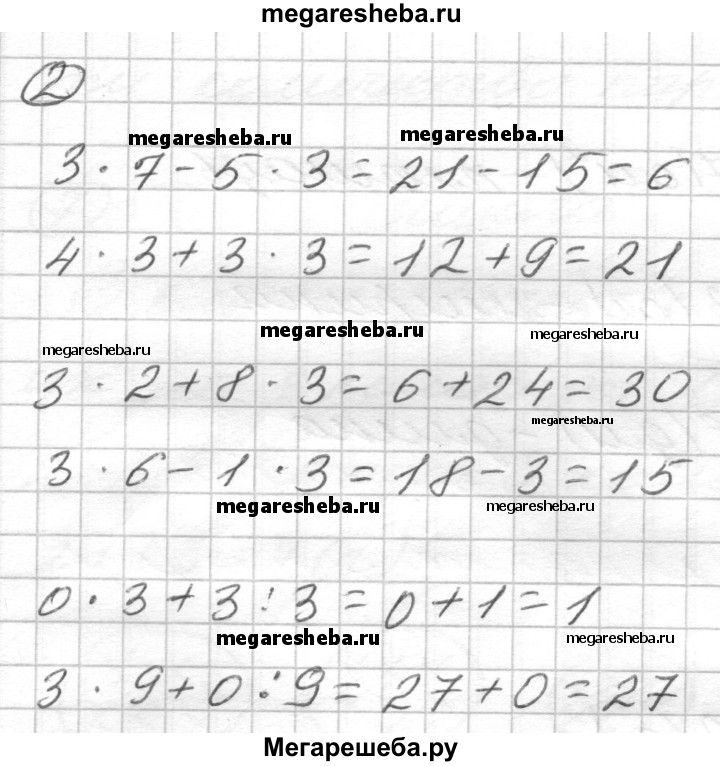 megaresheba.ru
2
megaresheba.ru megaresheba.ru
3 · 7 - 5 · 3 = 21 - 15 = 6
4 · 3 + 3 · 3 = 12 + 9 = 21
megaresheba.ru megaresheba.ru
megaresheba.ru
3 · 2 + 8 · 3 = 6 + 24 = 30
megaresheba.ru
3 · 6 - 1 · 3 = 18 - 3 = 15
megaresheba.ru megaresheba.ru
0 · 3 + 3 : 3 = 0 + 1 = 1
megaresheba.ru megaresheba.ru
3 · 9 + 0 : 9 = 27 + 0 = 27
Мегарешеба.ру